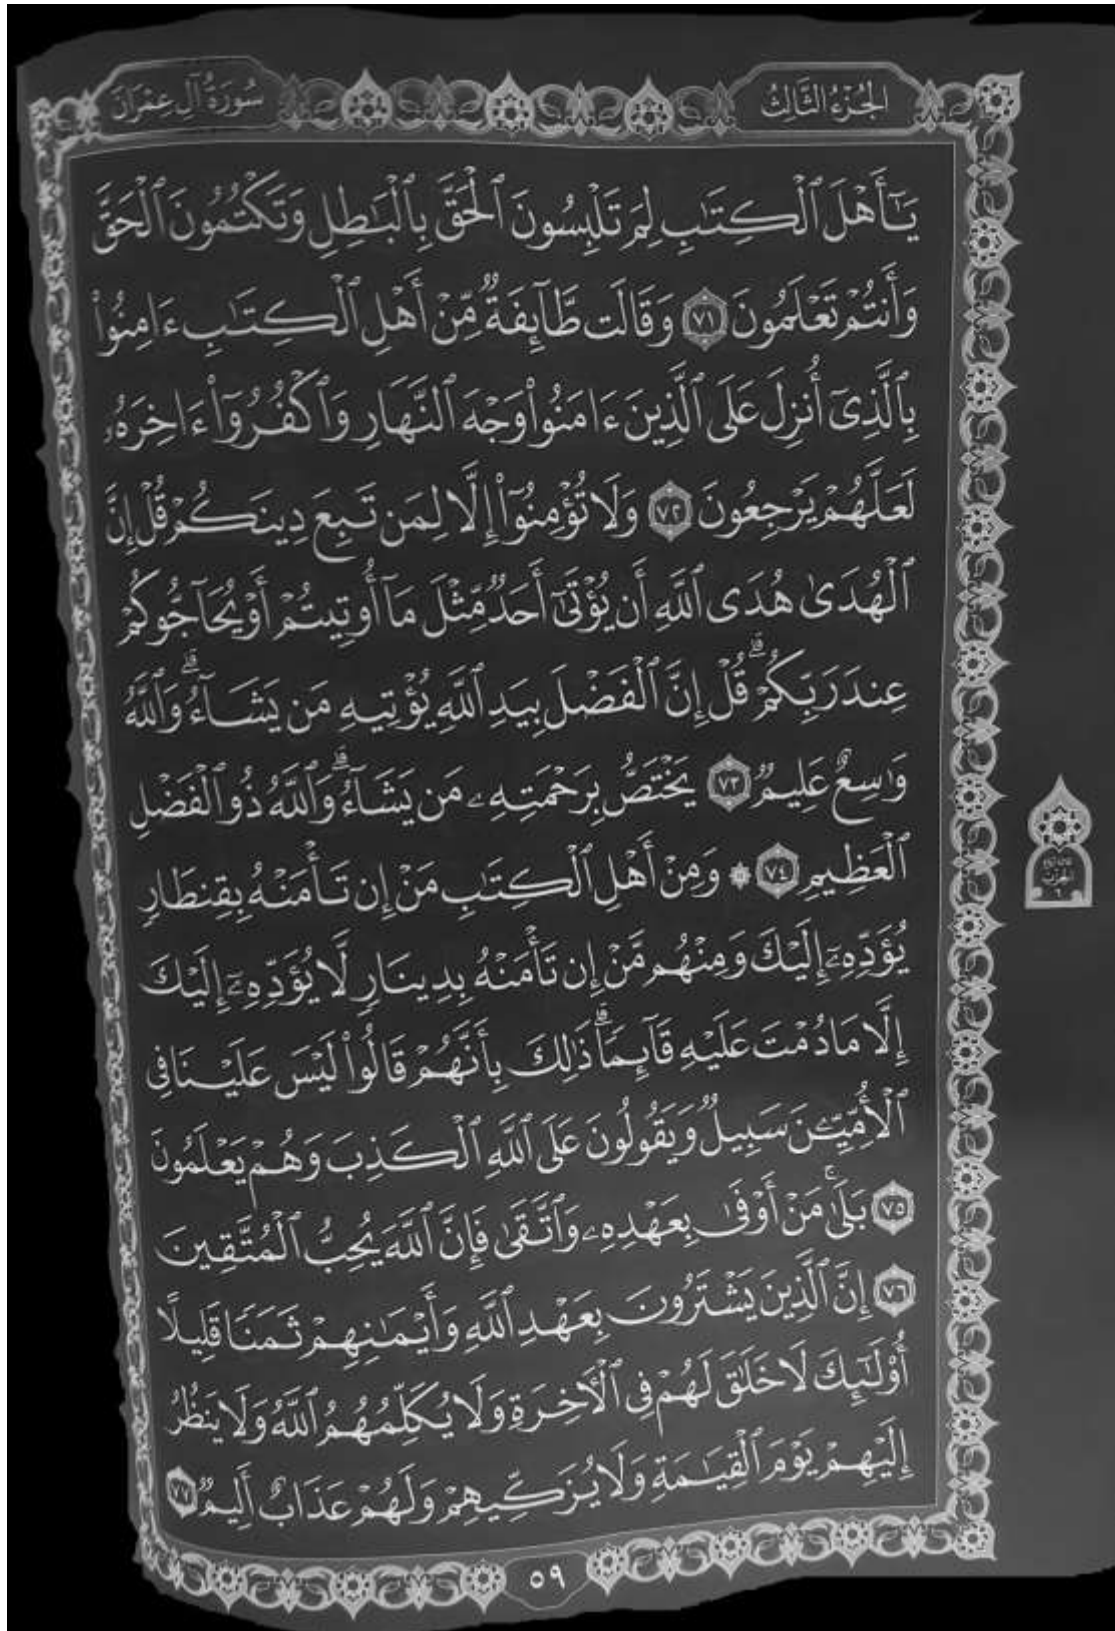 الجُزْءُ الثَّالِثُ
سُورَةُ آلِ عِمْرَانَ
يَـٰٓأَهْلَ ٱلْكِتَـٰبِ لِمَ تَلْبِسُونَ ٱلْحَقَّ بِٱلْبَـٰطِلِ وَتَكْتُمُونَ ٱلْحَقَّ
وَأَنتُمْ تَعْلَمُونَ ٧١ وَقَالَت طَّآئِفَةٌ مِّنْ أَهْلِ ٱلْكِتَـٰبِ ءَامِنُوا۟
بِٱلَّذِىٓ أُنزِلَ عَلَى ٱلَّذِينَ ءَامَنُوا۟ وَجْهَ ٱلنَّهَارِ وَٱكْفُرُوٓا۟ ءَاخِرَهُۥ
لَعَلَّهُمْ يَرْجِعُونَ ٧٢ وَلَا تُؤْمِنُوٓا۟ إِلَّا لِمَن تَبِعَ دِينَكُمْ قُلْ إِنَّ
ٱلْهُدَىٰ هُدَى ٱللَّهِ أَن يُؤْتَىٰٓ أَحَدٌ مِّثْلَ مَآ أُوتِيتُمْ أَوْ يُحَآجُّوكُمْ
عِندَ رَبِّكُمْ ۗ قُلْ إِنَّ ٱلْفَضْلَ بِيَدِ ٱللَّهِ يُؤْتِيهِ مَن يَشَآءُ ۗ وَٱللَّهُ
وَٰسِعٌ عَلِيمٌ ٧٣ يَخْتَصُّ بِرَحْمَتِهِۦ مَن يَشَآءُ ۗ وَٱللَّهُ ذُو ٱلْفَضْلِ
ٱلْعَظِيمِ ٧٤ ۞ وَمِنْ أَهْلِ ٱلْكِتَـٰبِ مَنْ إِن تَأْمَنْهُ بِقِنطَارٍ
يُؤَدِّهِۦٓ إِلَيْكَ وَمِنْهُم مَّنْ إِن تَأْمَنْهُ بِدِينَارٍ لَّا يُؤَدِّهِۦٓ إِلَيْكَ
إِلَّا مَا دُمْتَ عَلَيْهِ قَآئِمًا ۗ ذَٰلِكَ بِأَنَّهُمْ قَالُوا۟ لَيْسَ عَلَيْنَا فِى
ٱلْأُمِّيِّـۧنَ سَبِيلٌ وَيَقُولُونَ عَلَى ٱللَّهِ ٱلْكَذِبَ وَهُمْ يَعْلَمُونَ
٧٥ بَلَىٰ ۚ مَنْ أَوْفَىٰ بِعَهْدِهِۦ وَٱتَّقَىٰ فَإِنَّ ٱللَّهَ يُحِبُّ ٱلْمُتَّقِينَ
٧٦ إِنَّ ٱلَّذِينَ يَشْتَرُونَ بِعَهْدِ ٱللَّهِ وَأَيْمَـٰنِهِمْ ثَمَنًا قَلِيلًا
أُو۟لَـٰٓئِكَ لَا خَلَـٰقَ لَهُمْ فِى ٱلْـَٔاخِرَةِ وَلَا يُكَلِّمُهُمُ ٱللَّهُ وَلَا يَنظُرُ
إِلَيْهِمْ يَوْمَ ٱلْقِيَـٰمَةِ وَلَا يُزَكِّيهِمْ وَلَهُمْ عَذَابٌ أَلِيمٌ ٧٧
٥٩